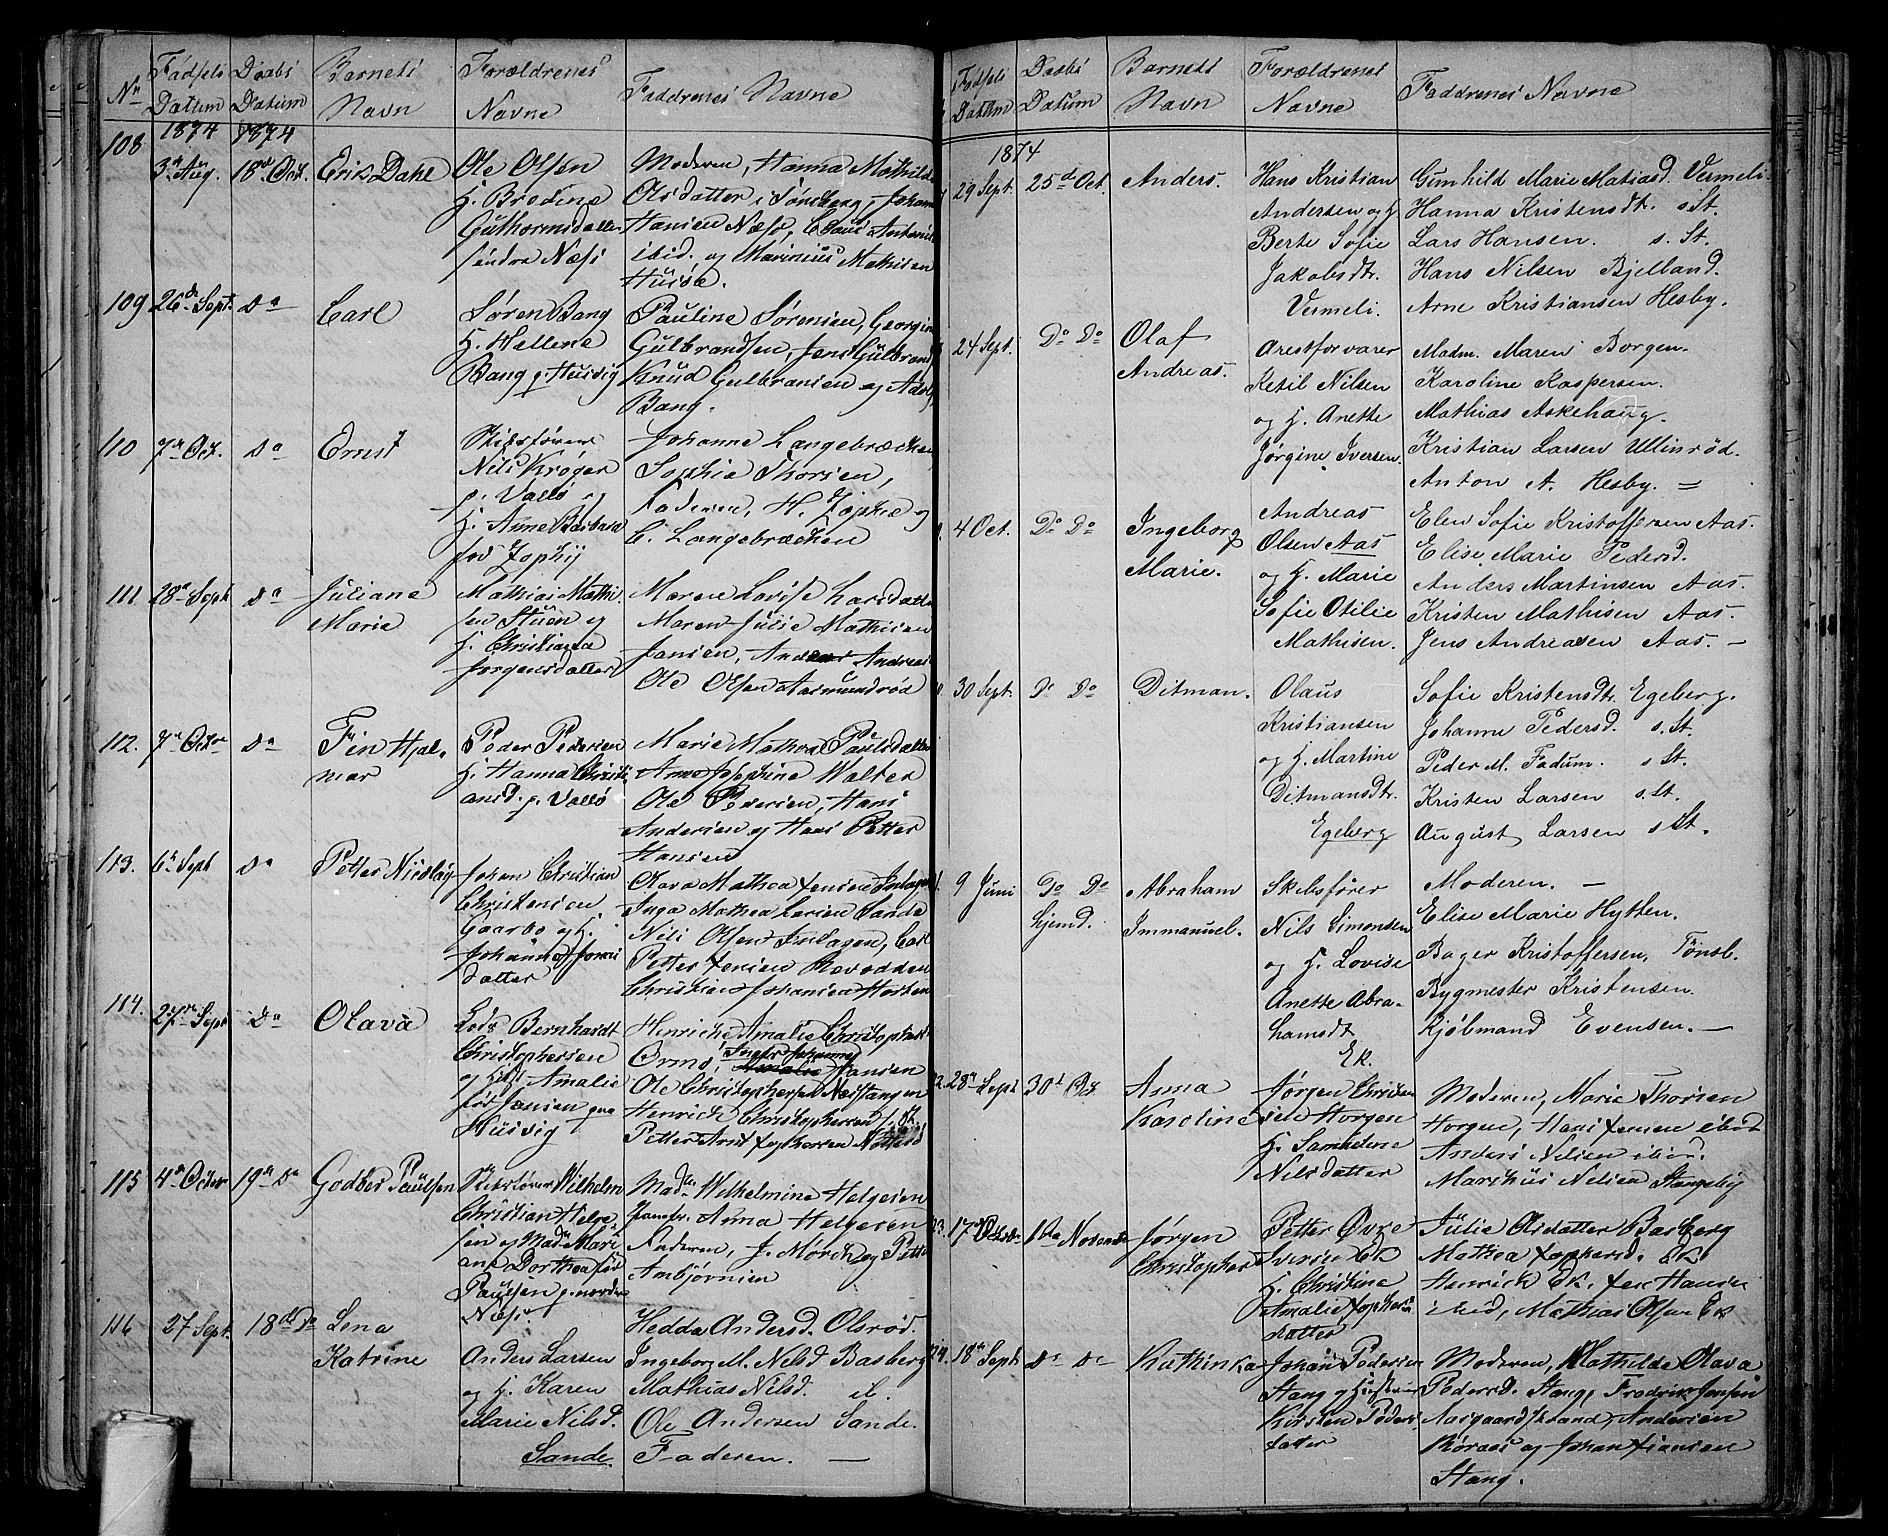 Nr Fødsels Datum Daabs Datum Barnets Navn Forældrenes Navne Faddrenes Navne
1874 1874
108 3d Aug. 18d Oct. Erik Dahl
Ole Olsen
H. Bredine
Guthormsdatter
søndre Næss
Moderen, Hanna Mathilde
Olsdatter i Sønsberg, Johan
Hansen Næss, Claus Antonis
ibid. og Marinius Mathisen
Husøe.
109 26d Sept. Do Carl
Søren Bang
H. Hellene
Bang p. Husvig
Pauline Sørensen, Georgine
Gulbrandsen, Jens Gulbrands
Knud Gulbransen og Adolf
Bang.
110 7d Oct. Do Ernst
Skibsførene
Nils Krøger
p. Vallø og
H. Anne Barbara
fød Zophij
Johanne Langebræcken
Sophie Thorsen,
Faderen, H. Zophie og
C. Langebræcken
111 28d Sept Do Juliane
Marie
Mathias Mathi-
sen Stuen og
H. Christiana
Jørgensdatter
Maren Lovise Larsdatter
Maren Julie Mathisen
Jansen, Andreas
Ole Olsen Aasmundrød
112. 7d Octor Do Fin Hjal-
mar
Peder Pedersen
H. Hanna Christi-
ansd. p. Vallø
Marie Mathea Paulsdatter
Anne Josephine Walter
Ole Pedersen, Hans
Andersen og Hans Petter
Hansen
113. 6d Sept Do Petter Nicolay
Johan Christian
Christensen
Gaarbo og H.
Johanne Jons
datter
Olava Mathea Jensine Indlagen
Inga Mathea Larsen Sande
Nils Olsen Indlagen, Carl
Petter Jensen Rævodden
Christian Johansen Horten
114. 27de Sept Do Olava
Lods Bernhardt
Christophersen
og H. Amalie
fød Jensen paa
Husvig
Henricke Amalie Christophersd.
Ormø, Inger Johanne
Hansen
Ole Christophersen Næstangen
Henrich Christophersen s. St.
Petter Arnt Jophersen Nøtterø
115 4d Octobr 19d Do Godber Paulsen
Skibsfører Wilhelm
Christian Helge-
sen og Mad. Mari
ane Dorthea fød
Paulsen p. nordre
Næss.
Madm Wilhelmine Helgesen
Jomfr. Anna Helgesen
Faderen, J. Mørch og Petter
Ambjørnsen
116 27 Sept. 18d Do Lena
Katrine
Anders Larsen
og H. Karen
Marie Nilsd.
Sande.
Hedda Andersd. Olsrød.
Ingeborg M. Nilsd Basberg
Mathias Nilsd. ib.
Ole Andersen Sande.
Faderen. —
Fødsels Datum Daabs Datum Barnets Navn Forældrenes Navne Faddrenes Navne
1874
29 Sept. 25d Oct. Anders.
Hans Kristian
Andersen og H.
Berte Sofie
Jakobsdtr.
Vermeli.
Gunhild Marie Matiasd. Vermeli.
Hanna Kristensdtr. s. St.
Lars Hansen. s. St.
Hans Nilsen Bjelland.
Arne Kristiansen Hesby.
24 Sept. Do Do Olaf
Andreas.
Arestforvarer
Ketil Nilsen
og H. Anette
Jørgine Iversen.
Madm. Maren Borgen.
Karoline Kaspersen.
Mathias Askehaug.
Kristian Larsen Ullinrød.
Anton A. Hesby. =
4 Oct. Do Do Ingeborg
Marie.
Andreas
Olsen Aas
og H. Marie
Sofie Otilie
Mathisen.
Elen Sofie Kristoffersen Aas.
Elise Marie Pedersd.
Anders Martinsen Aas.
Kristen Mathisen Aas.
Jens Andreasen Aas. —
30 Sept. Do Do Ditman.
Olaus
Kristiansen
og H. Martine
Ditmansdtr.
Egeberg
Sofie Kristensdtr Egeberg.
Johanne Pedersd. s. St.
Peder M. Fadum. s St.
Kristen Larsen s. St.
August Larsen s St.
9 Juni Do Do
hjemd.
Abraham
Immanuel.
Skibsfører
Nils Simonsen
og H. Lovise
Anette Abra-
hamsdt
Ek.
Moderen. —
Elise Marie Hytten.
Bager Kristoffersen. Tønsb.
Bygmester Kristensen.
Kjøbmand Evensen. —
28d Sept 30d Do Anna
Karoline
Jørgen Christen
sen Horgen
H. Samuline
Nilsdatter
Moderen, Marie Thorsen
Horgen, Hans Jensen ibid
Anders Nilsen ibid.
Markhus Nilsen Stangeby
17d Octobr 1ste November Jørgen
Christopher
Petter Øvre
Iversen Ek
H. Christine
Amalie Jophers
datter
Julie Olsdatter Basberg
Mathea Jophersd. Ek
Henrich Ek. Jen Hansen
ibid, Mathias Olsen Ek
18d Sept Do Do Kathinka
Johan Pedersen
Stang og Hustru
Kirsten Peders
datter
Moderen, Mathilde Olava
Pedersd. Stang, Fredrik Jensen
Aasgaardstrand, Andersen
Røraas og Johan Jansen
Stang.